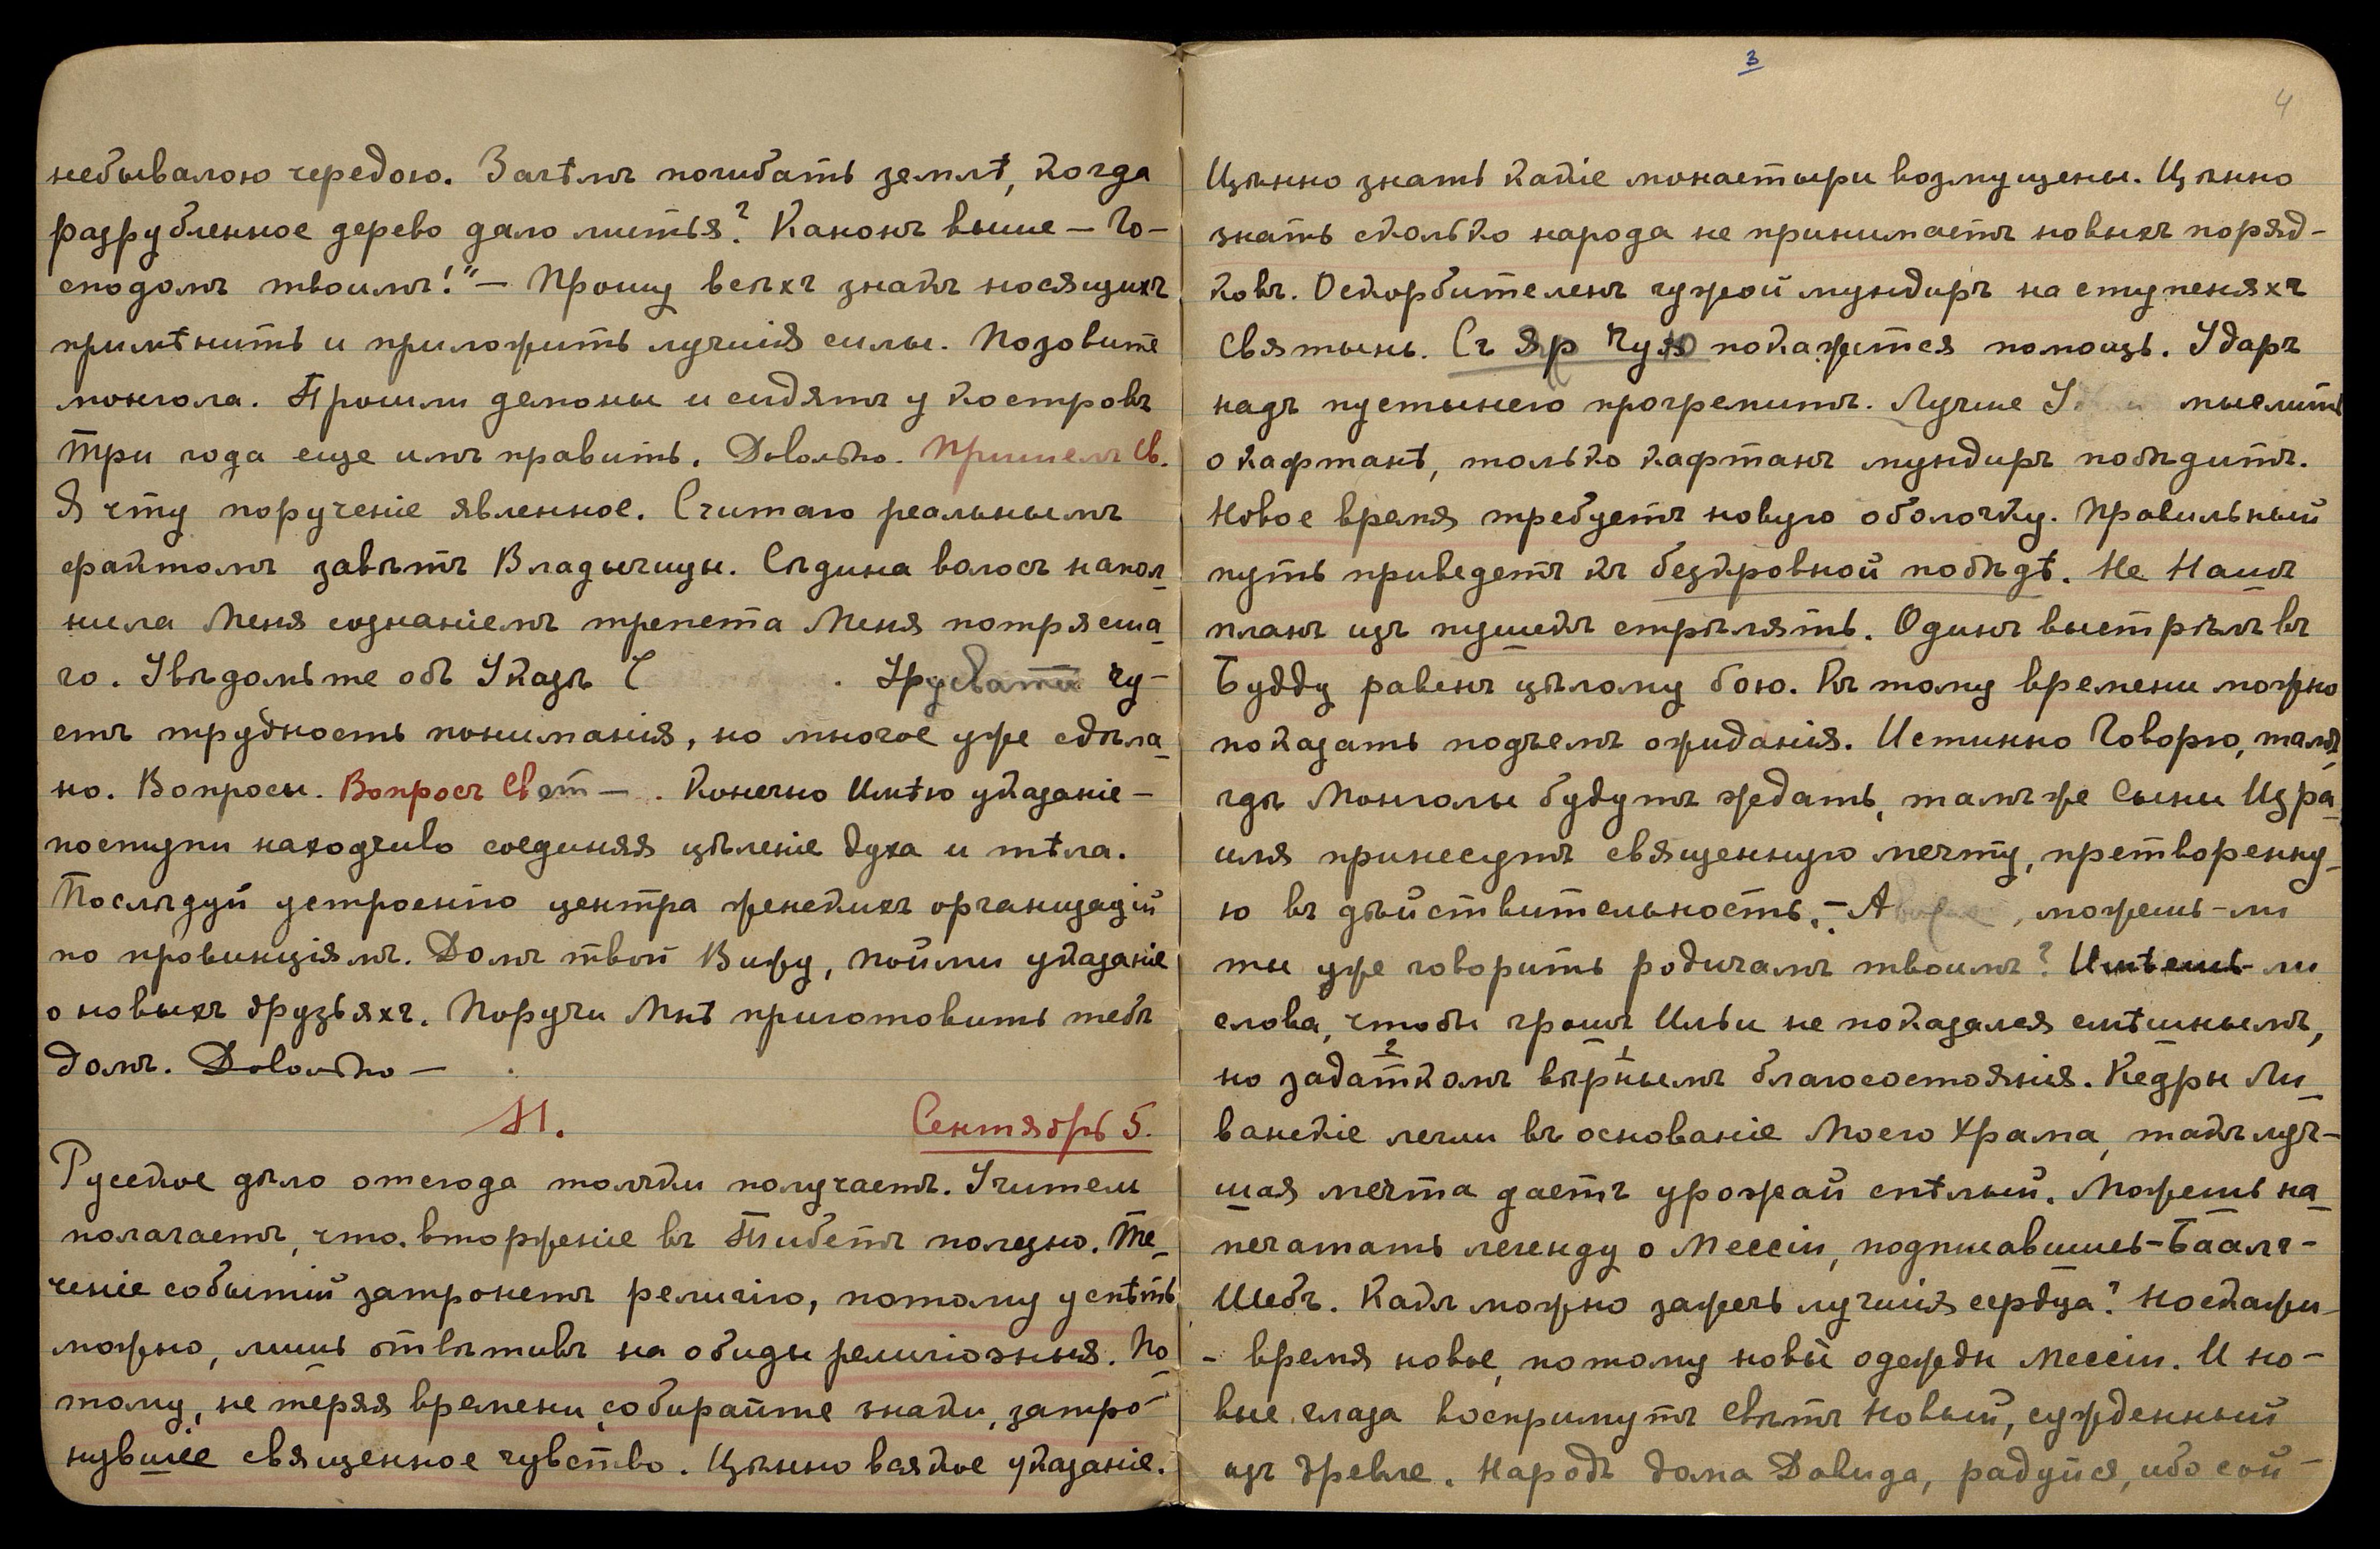 небывалою чередою. Зачѣмъ погибать землѣ, когда
разрубленное дерево дало литья? Канонъ выше — Го-
сподомъ твоимъ!" — Прошу всѣхъ знакъ носящихъ
примѣнить и приложить лучшія силы. Позовите
монгола. Прошли демоны и сидятъ у костровъ
три года еще имъ править. Довольно. Пришелъ Св.
Я чту порученіе явленное. Считаю реальнымъ
фактомъ завѣтъ Владычицы. Сѣдина волосъ напол-
нила Меня сознаніемъ трепета Меня потрясша-
го. Увѣдомьте объ Указѣ Урусвати чу-
етъ трудность пониманія, но многое уже сдѣла-
но. Вопросы. Вопросъ Свет — . Конечно Имѣю указаніе —
поступи находчиво соединяя цѣленіе духа и тѣла.
Послѣдуй устроенію центра женскихъ организацій
по провинціямъ. Домъ твой Вижу, пойми указаніе
о новыхъ друзьяхъ. Поручи Мнѣ приготовить тебѣ
домъ. Довольно —
Н. Сентябрь 5.
Русское дѣло отсюда толчки получаетъ. Учитель
полагаетъ, что вторженіе въ Тибетъ полезно. Те-
ченіе событій затронетъ религію, потому успѣть
можно, лишь отвѣтивъ на обиды религіозныя. По
тому, не теряя времени собирайте знаки, затро-
нувшіе священное чувство. Цѣнно всякое указаніе.
3
4
Цѣнно знать какіе монастыри возмущены. Цѣнно
знать сколько народа не принимаетъ новыхъ поряд-
ковъ. Оскорбителенъ чужой мундиръ на ступеняхъ
Святынь. Съ Яр Чую покажится помощь. Ударъ
надъ пустынею прогремитъ. Лучше мыслить
о кафтанѣ, только кафтанъ мундиръ побѣдитъ.
Новое время требуетъ новую оболочку. Правильный
путь приведетъ къ безкровной побѣдѣ. Не Нашъ
планъ изъ пушекъ стрѣлять. Одинъ выстрѣлъ въ
Будду равенъ цѣлому бою. Къ тому времени можно
показать подъемъ ожиданія. Истинно Говорю, тамъ,
гдѣ Монголы будутъ ждать, тамъ же Сыны Изра-
иля принесутъ священную мечту, претворенну-
ю въ дѣйствительность. — можешь-ли
ты уже говорить родичамъ твоимъ? Имѣешь-ли
слова, чтобы громъ Ильи не показался смѣшнымъ,
но задаткомъ вѣрнымъ благосостоянія. Кедры Ли-
ванскіе легли въ основаніе Моего Храма, такъ луч-
шая мечта даетъ урожай спѣлый. Можешь на-
печатать легенду о Мессіи, подписавшись — Баалъ-
Шебъ. Какъ можно зажечь лучшія сердца? Но скажи
- время новое, потому новы одежды Мессіи. И но-
вые глаза воспримутъ Свѣтъ Новый, сужденный
изъ древле. Народъ дома Давида, радуйся, ибо сой-